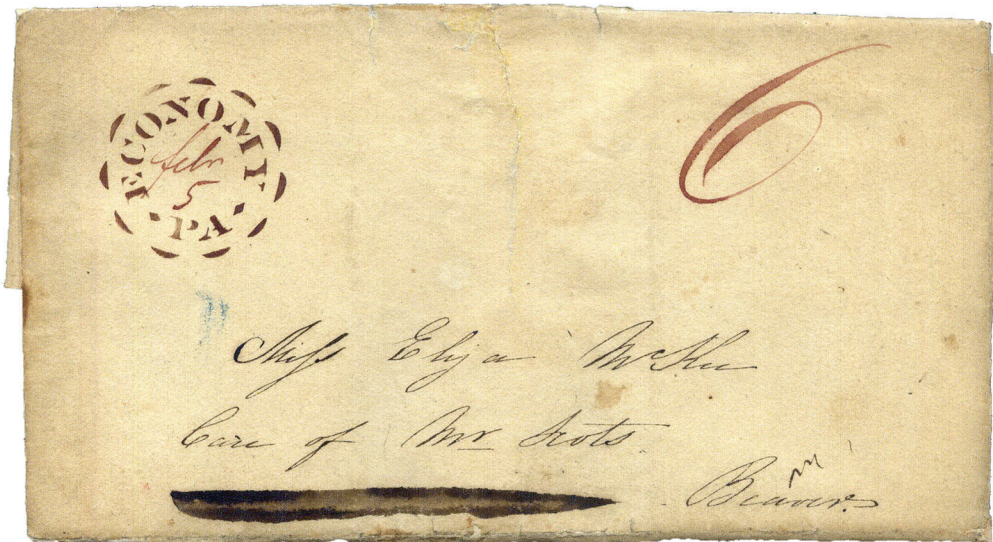 ECONOMY
Febr
5
PA
6
Miss Eliza McKee
Care of Mr Scots
Beaver